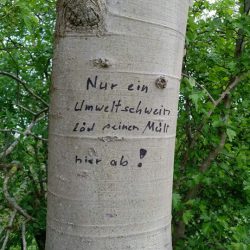 Nur ein
Umweltschwein
läd seinen Müll
hier ab!